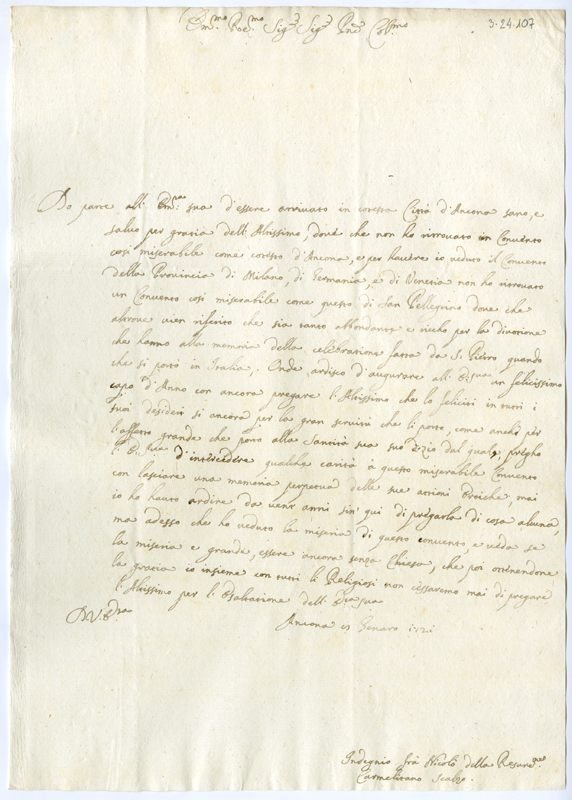 3-24.107
Em.mo Rev.mo Sig.r Sig.r Pne Col.mo
Do parte all'Em.za sua d'essere arrivato in cotesta Città d'Ancona sano, e
salvo per gratia dell'Altissimo, dove che non ho ritrovato un Convento
così miserabile come cotesto d'Ancona, e per havere io veduto il Convento
della Provincia di Milano, di Germania, e di Venetia non ho ritrovato
un Convento così miserabile come questo di San Pellegrino dove che
altrove vien riferito che sia tanto abbondante e riccho per la divotione
che hanno alla memoria della celebratione fatta da S. Pietro quando
che si portò in Italia. Onde ardisco d'augurare all' un felicissimo
capo d'Anno con ancora pregare l'Altissimo che lo feliciti in tutti i
suoi desiderij si ancora per la gran servitù che li porto, come anche per
l'affetto grande che porto alla Santità sua suo Zio dal quale, pregho
l'E. Sua d'intercedere qualche carità a questo miserabile Convento
con lasciare una memoria perpetua delle sue attioni Eroiche, mai
io ho hauto ardire da venti anni sin' qui di pregarla di cosa alcuna,
ma adesso che ho veduto la miseria di questo convento, e veda se
la miseria è grande, essere ancora senza Chiesa, che poi ottenendone
la gratia io insieme con tutti li Religiosi non cessaremo mai di pregare
l'Altissimo per l'Esaltatione dell' sua
D.V.E.za
Ancona 15 Genaro 1721
Indegnio frà Nicolò della Resure.ne
Carmelitano Scalzo.